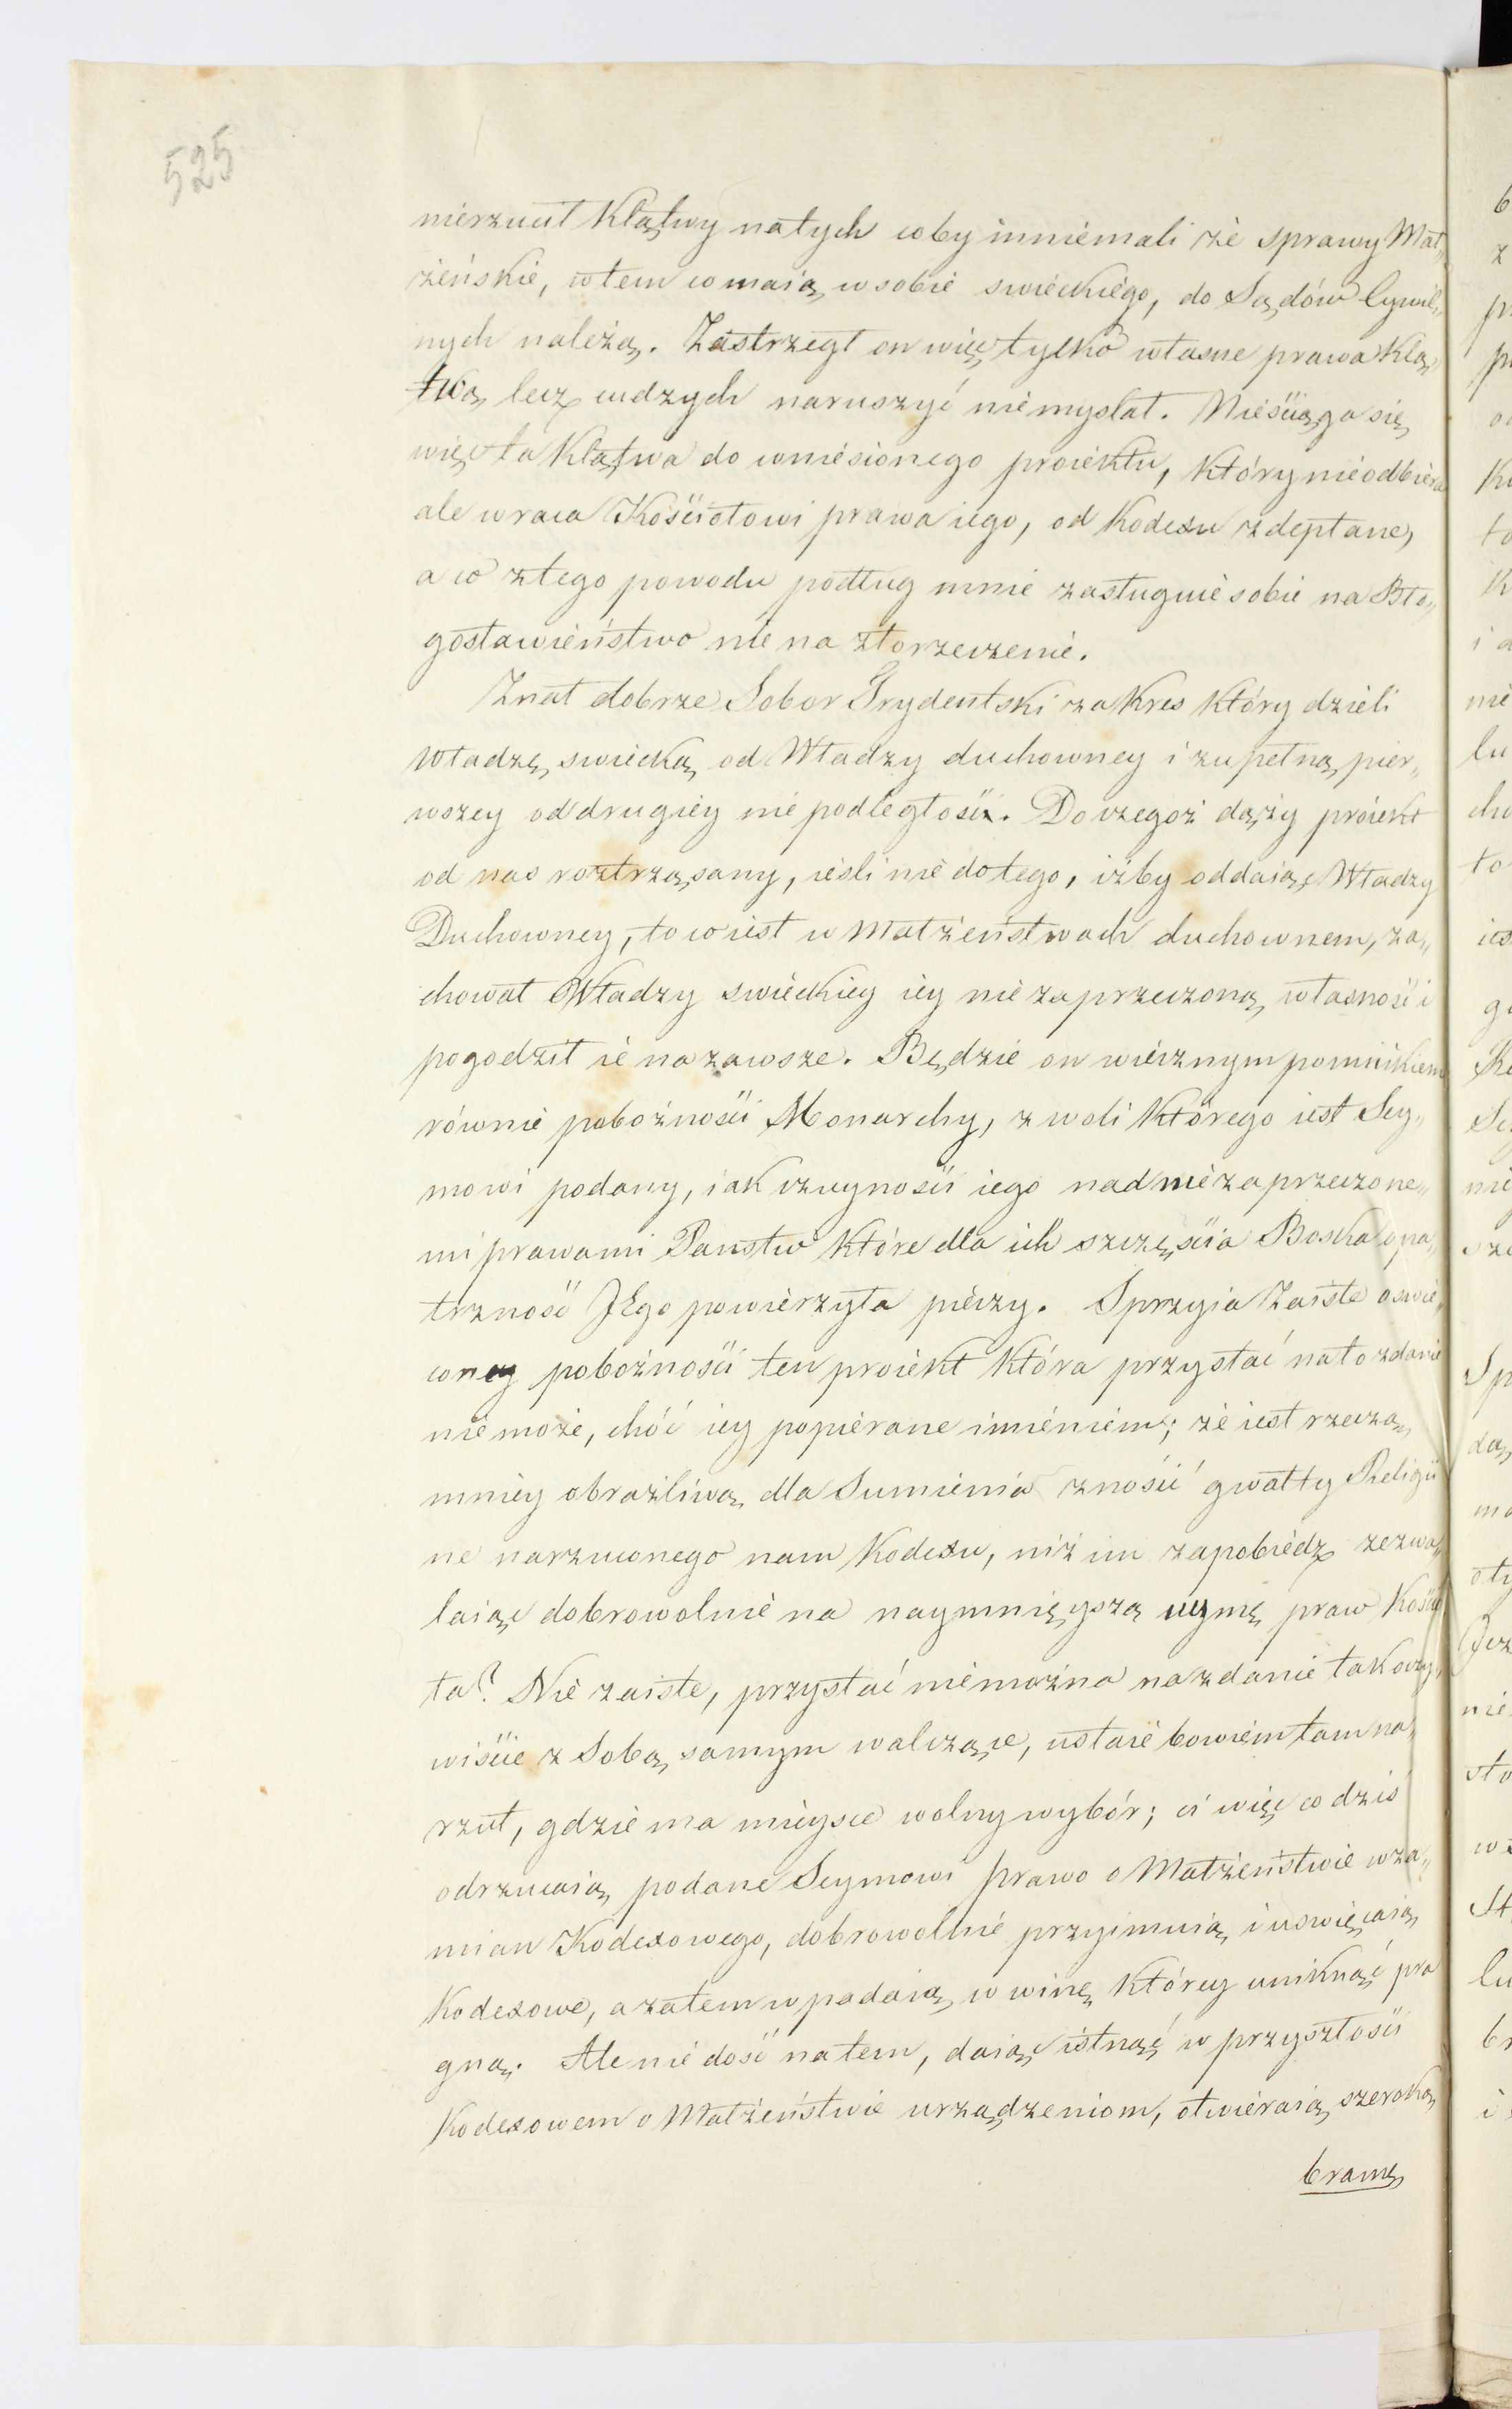 525
nierzucił Klątwy natych coby inniemali że sprawy Mał„
żeńskie, wtem co maią w sobie swieckiego, do Sądów Cywil„
nych należą. Zastrzegł on więc tylko własne prawa Klą„
twą, lecz cudzych naruszyć niemyslał. Nieściąga się
więc ta Klątwa do wniesionego proiektu, który nieodbiera
ale wraca Kościołowi prawa iego, od Kodexu zdeptane,
a co ztego powodu podług mnie zasługuie sobie na Bło„
gosławieństwo nie na złorzeczenie.
Znał dobrze Sobor Trydentski zakres który dzieli
Władzę swiecką od Władzy duchowney i zupełną pier„
wszey od drugiey nie podległość. Do czegoż dąży proiekt
od nas roztrząsany, ieśli nie do tego, iżby oddaiąc Władzy
Duchowney, to co iest w Małżeństwach duchownem, za„
chował Władzy swieckiey iey nie zaprzeczoną własność i
pogodził ie nazawsze. Będzie on wiecznym pomnikiem
równie pobożności Monarchy, z woli którego iest Sey„
mowi podany, iak czuyności iego nad niezaprzeczone„
mi prawami Panstw które dla ich szczęścia Boska opa„
trzność JEgo powierzyła pieczy. Sprzyia Zaiste oswie„
coney pobożności ten proiekt która przystać na to zdanie
nie może, choć iey popierane imieniem; że iest rzeczą
mniey obrażliwą dla Sumienia znosić gwałty Religii
ne narzuconego nam Kodexu, niż im zapobiedz zezwa„
laiąc dobrowolnie na naymnięyszą uymę praw Kościo
ła? Nie zaiste, przystać niemożna na zdanie tak oczy„
wiście z Sobą samym walczące, ustaie bowiem tam na„
rzut, gdzie ma mieysce wolny wybór; ci więc co dziś
odrzucaią podane Seymowi prawo o Małżeństwie wza„
mian Kodexowego, dobrowolnie przyimuią i uswięcaią
Kodexowe, a zatem wpadaią w winę którey uniknąć pra
gną. Ale nie dość na tem, daiąc istnąć w przyszłości
Kodexowem o Małżeństwie urządzeniom, otwieraią szeroką
bramę